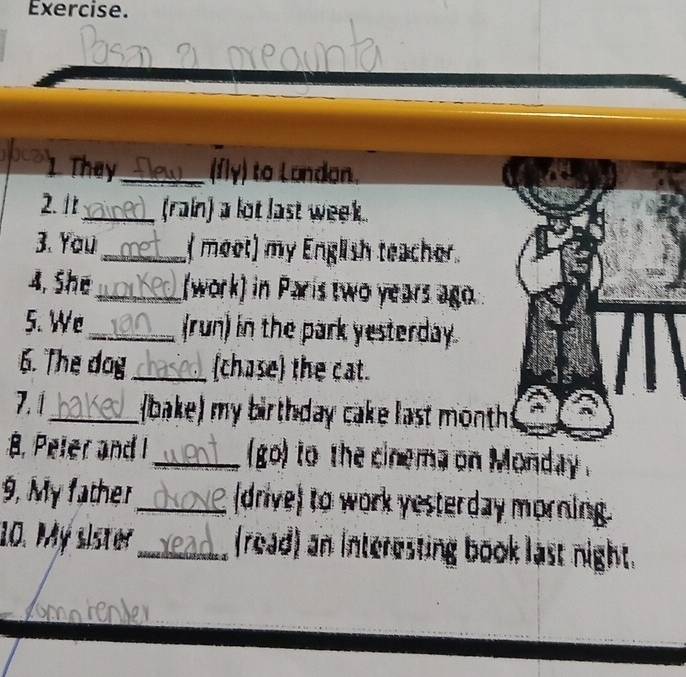 Exercise.
Pasan a pregunta
1. They flew (fly) to London.
2. It rained (rain) a lot last week.
3. You met ( meet) my English teacher.
4. She worked (work) in Paris two years ago.
5. We ran (run) in the park yesterday.
6. The dog chased (chase) the cat.
7. I baked (bake) my birthday cake last month.
8. Peter and I went (go) to the cinema on Monday.
9. My father drove (drive) to work yesterday morning.
10. My sister read (read) an interesting book last night.